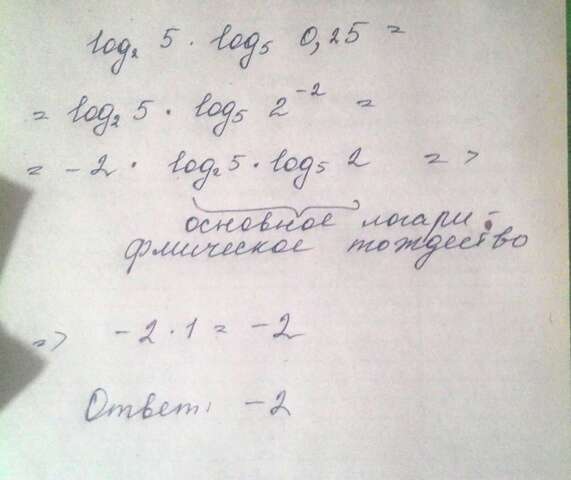 log₂ 5 · log₅ 0,25 =
= log₂ 5 · log₅ 2⁻² =
= -2 · log₂ 5 · log₅ 2 =>
основное логари-
фмическое тождество
=> -2 · 1 = -2
Ответ: -2